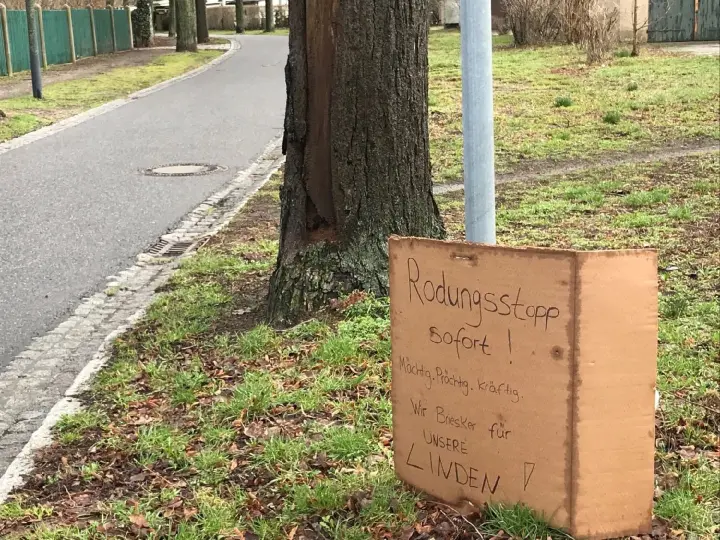 Rodungsstopp
sofort !
Mächtig. Prächtig. kräftig.
Wir Bresker für
UNSERE
LINDEN !